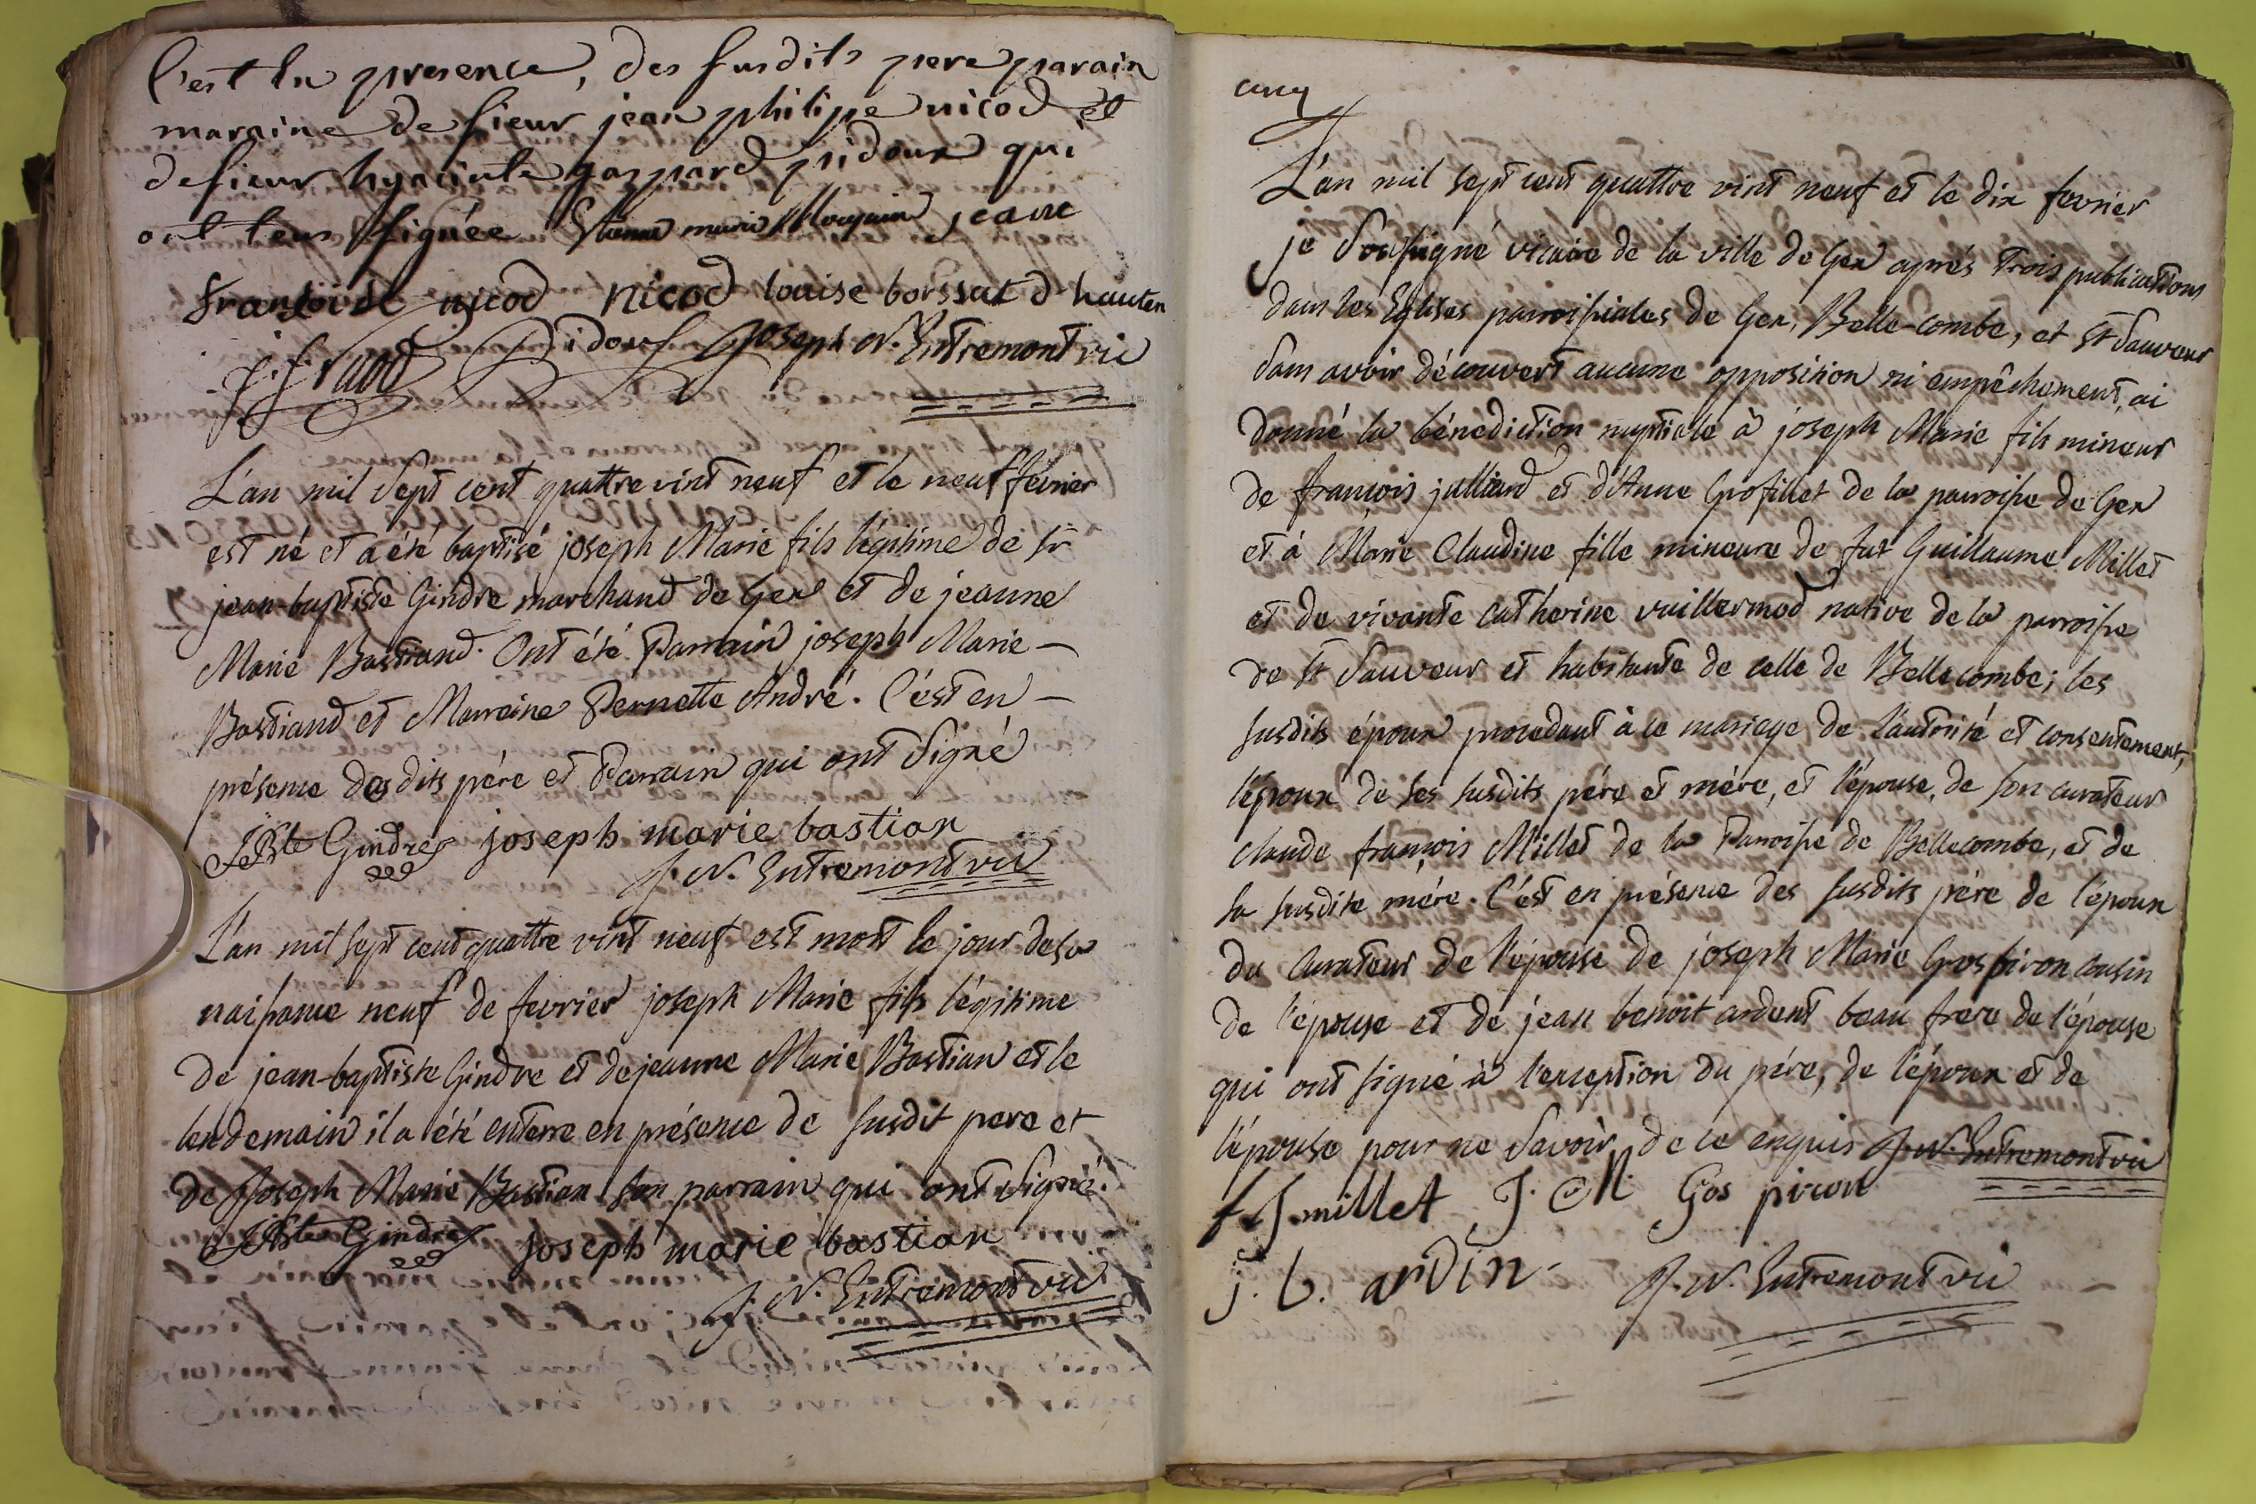 C'est en presence, des susdits pere parain
maraine de sieur jean philipe nicod et
de sieur hyacinte gaspard pidoux qui
ont tous signée Etienne marie Mocquin jeanc
fransoise nicod nicod louise borssat d hauten
Pidoux Joseph N. Entremont vic
L'an mil sept cent quattre vint neuf et le neuf février
est né et a été baptisé joseph Marie fils légitime de sr
jean-baptiste Gindre marchand de Gex et de jeanne
Marie Bastiand. Ont été Parrain joseph Marie -
Bastiand et Marraine Pernette André. C'est en -
présence desdits pére et Parrain qui ont signé
JBte Gindre joseph marie bastian
J. N. Entremont vic
L'an mil sept cent quattre vint neuf est mort le jour de sa
naissance neuf de fevrier joseph Marie fils légitime
de jean-baptiste Gindre et de jeanne Marie Bastian et le
lendemain il a été enterre en présence de susdit pere et
de Joseph Marie Bastian son parrain qui ont signé.
JBte Gindre joseph marie bastian
J. N. Entremont vic
cinq
L'an mil sept cent quattre vint neuf et le dix fevrier
je soussigné vicaire de la ville de Gex aprés trois publications
dans les Eglises parroissiales de Gex, Belle-combe, et St Sauveur
sans avoir découvert aucune opposition ni empêchement, ai
donné la bénédiction nuptiale à joseph Marie fils mineur
de françois julliard et d'Anne Grosfillet de la parroisse de Gex
et á Marie Claudine fille mineure de fut Guillaume Millet
et de vivante Catherine vuillermod native de la parroisse
de St Sauveur et habitante de celle de Bellecombe; les
susdits époux procedant à ce mariage de l'autorité et consentement,
l'époux de ses susdits pére et mére, et l'épouse, de son curateur
claude françois Millet de la Parroisse de Bellecombe, et de
sa susdite mére. C'est en présence des susdits pére de l'époux
du curateur de l'épouse de joseph Marie Grospiron cousin
de l'épouse et de jean benoit ardent beau frere de l'épouse
qui ont signé à l'exception du pére, de l'époux et de
l'épouse pour ne savoir, de ce enquis J. N. Entremont vic
f millet J. M. Gos piron
j. b. ardin - J. N. Entremont vic